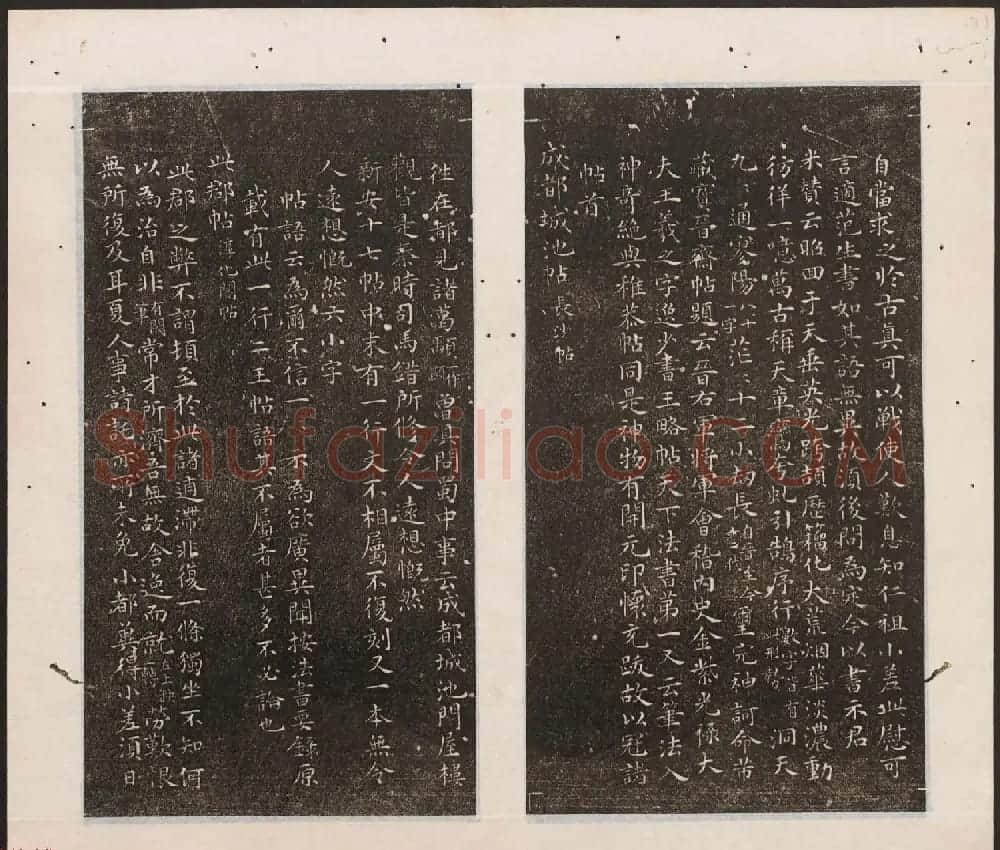 自當求之於古真可以戰使人歎息知仁祖小差此慰可
言適范生書如其語無異故須後問為定今以書示君
米贊云昭回于天垂英光跨頡歷籀化大荒烟華淡濃動
彷徉一噫萬古稱天章鸞誇虬引鵠序行洞天
九九通寥陽茫茫十二小劫長璽完神訶命芾
藏寶晉齋帖題云晉右軍將軍會稽內史金紫光祿大
夫王羲之字逸少書王略帖天下法書第一又云筆法入
神奇絕與稚恭帖同是神物有開元印懷充跋故以冠諸
帖首
成都城池帖長沙帖
往在都見諸葛顒一作顯曾具問蜀中事云成都城池門屋樓
觀皆是秦時司馬錯所修令人遠想慨然
新安十七帖中末有一行文不相屬不復刻又一本無令
人遠想慨然六小字
帖語云為爾不信一一示為欲廣異聞按法書要錄原
載有此一行二王帖語其不屬者甚多不必論也
此郡帖淳化閣帖
此郡之弊不謂頓至於此諸逋滯非復一條獨坐不知何
以為治自非常才所濟吾無故舍逸而就勞歎恨
無所復及耳夏人事請託亦所未免小都冀得小差須日
Shufaziliao.COM